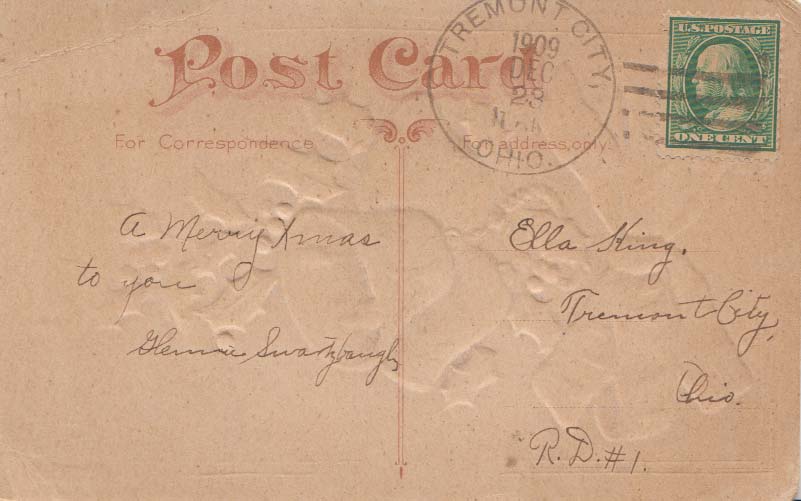 Post Card
For Correspondence
For address only.
TREMONT CITY,
1909
DEC
23
OHIO.
U.S. POSTAGE
ONE CENT
A Merry Xmas
to you
Glennie Swartzbaugh
Ella King.
Tremont City,
Ohio.
R.D.#1.